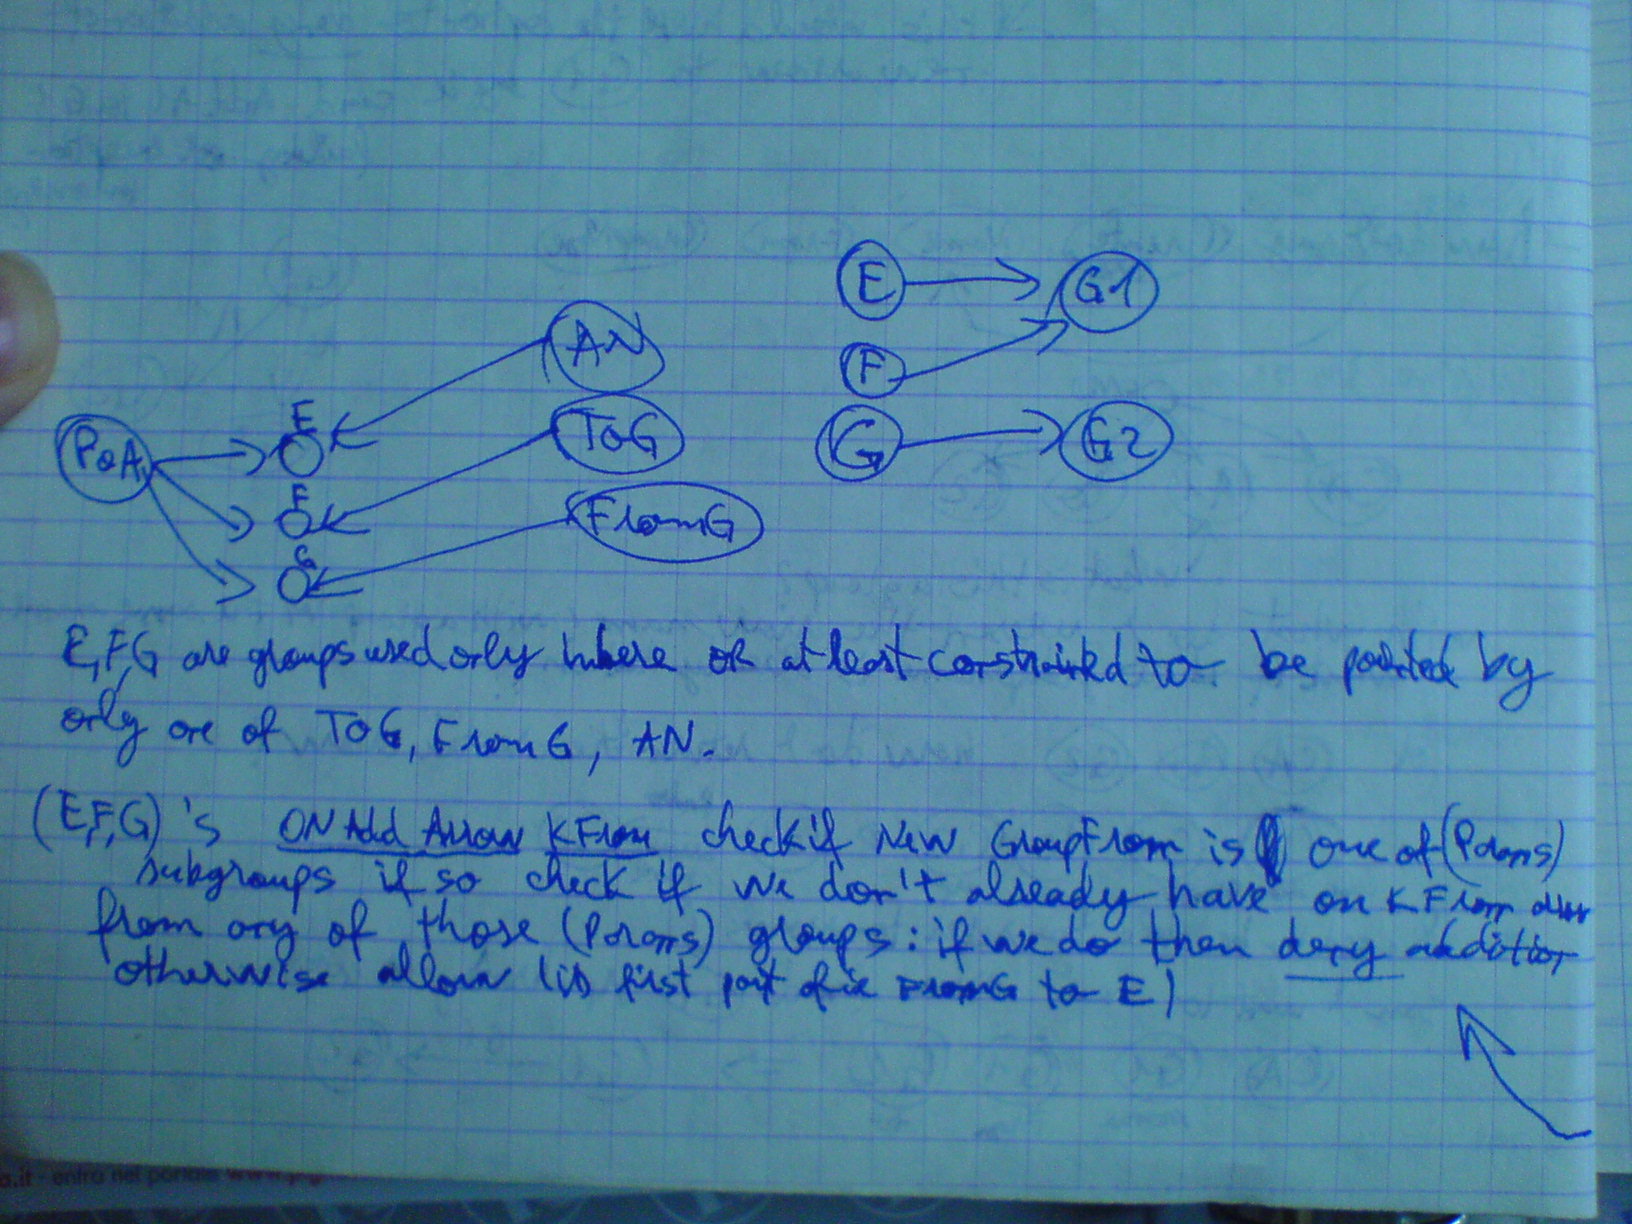 E
G1
AN
F
E
ToG
PoA
G
G2
F
FromG
G
E,F,G are groups used only where or at least constrained to be pointed by
only one of ToG, FromG, AN.
(E,F,G)'s ON Add Arrow KFrom check if New GroupFrom is one of (Params)
subgroups if so check if we don't already have an KFrom
from any of those (Params) groups: if we do then deny addition
otherwise allow (is first part of ie FromG to E)
- entra nel portale www.